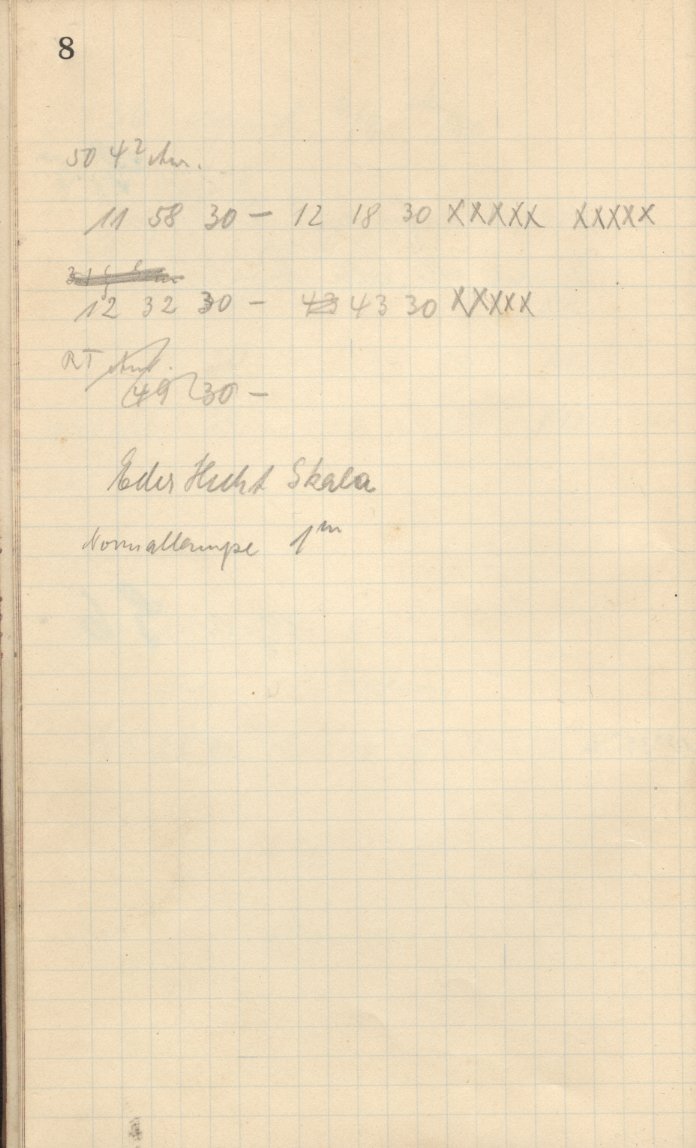 8
50 4²
11 58 30 — 12 18 30 XXXXX XXXXX
12 32 30 — 43 43 30 XXXXX
RT
49 30 —
Eder Hecht Skala
Normallampe 1ᵐ